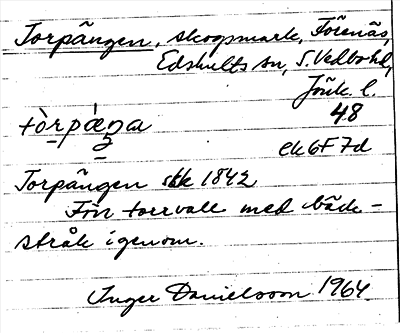 Torpängen, skogsmark, Förenäs,
Edshults sn, S. Vedbo hd,
Jönk. l.
48
tòrpæ̀ŋa
ek 6F 7d
Torpängen stk 1842
Förr torrvall med bäck-
stråk igenom.
Inger Danielsson 1964.